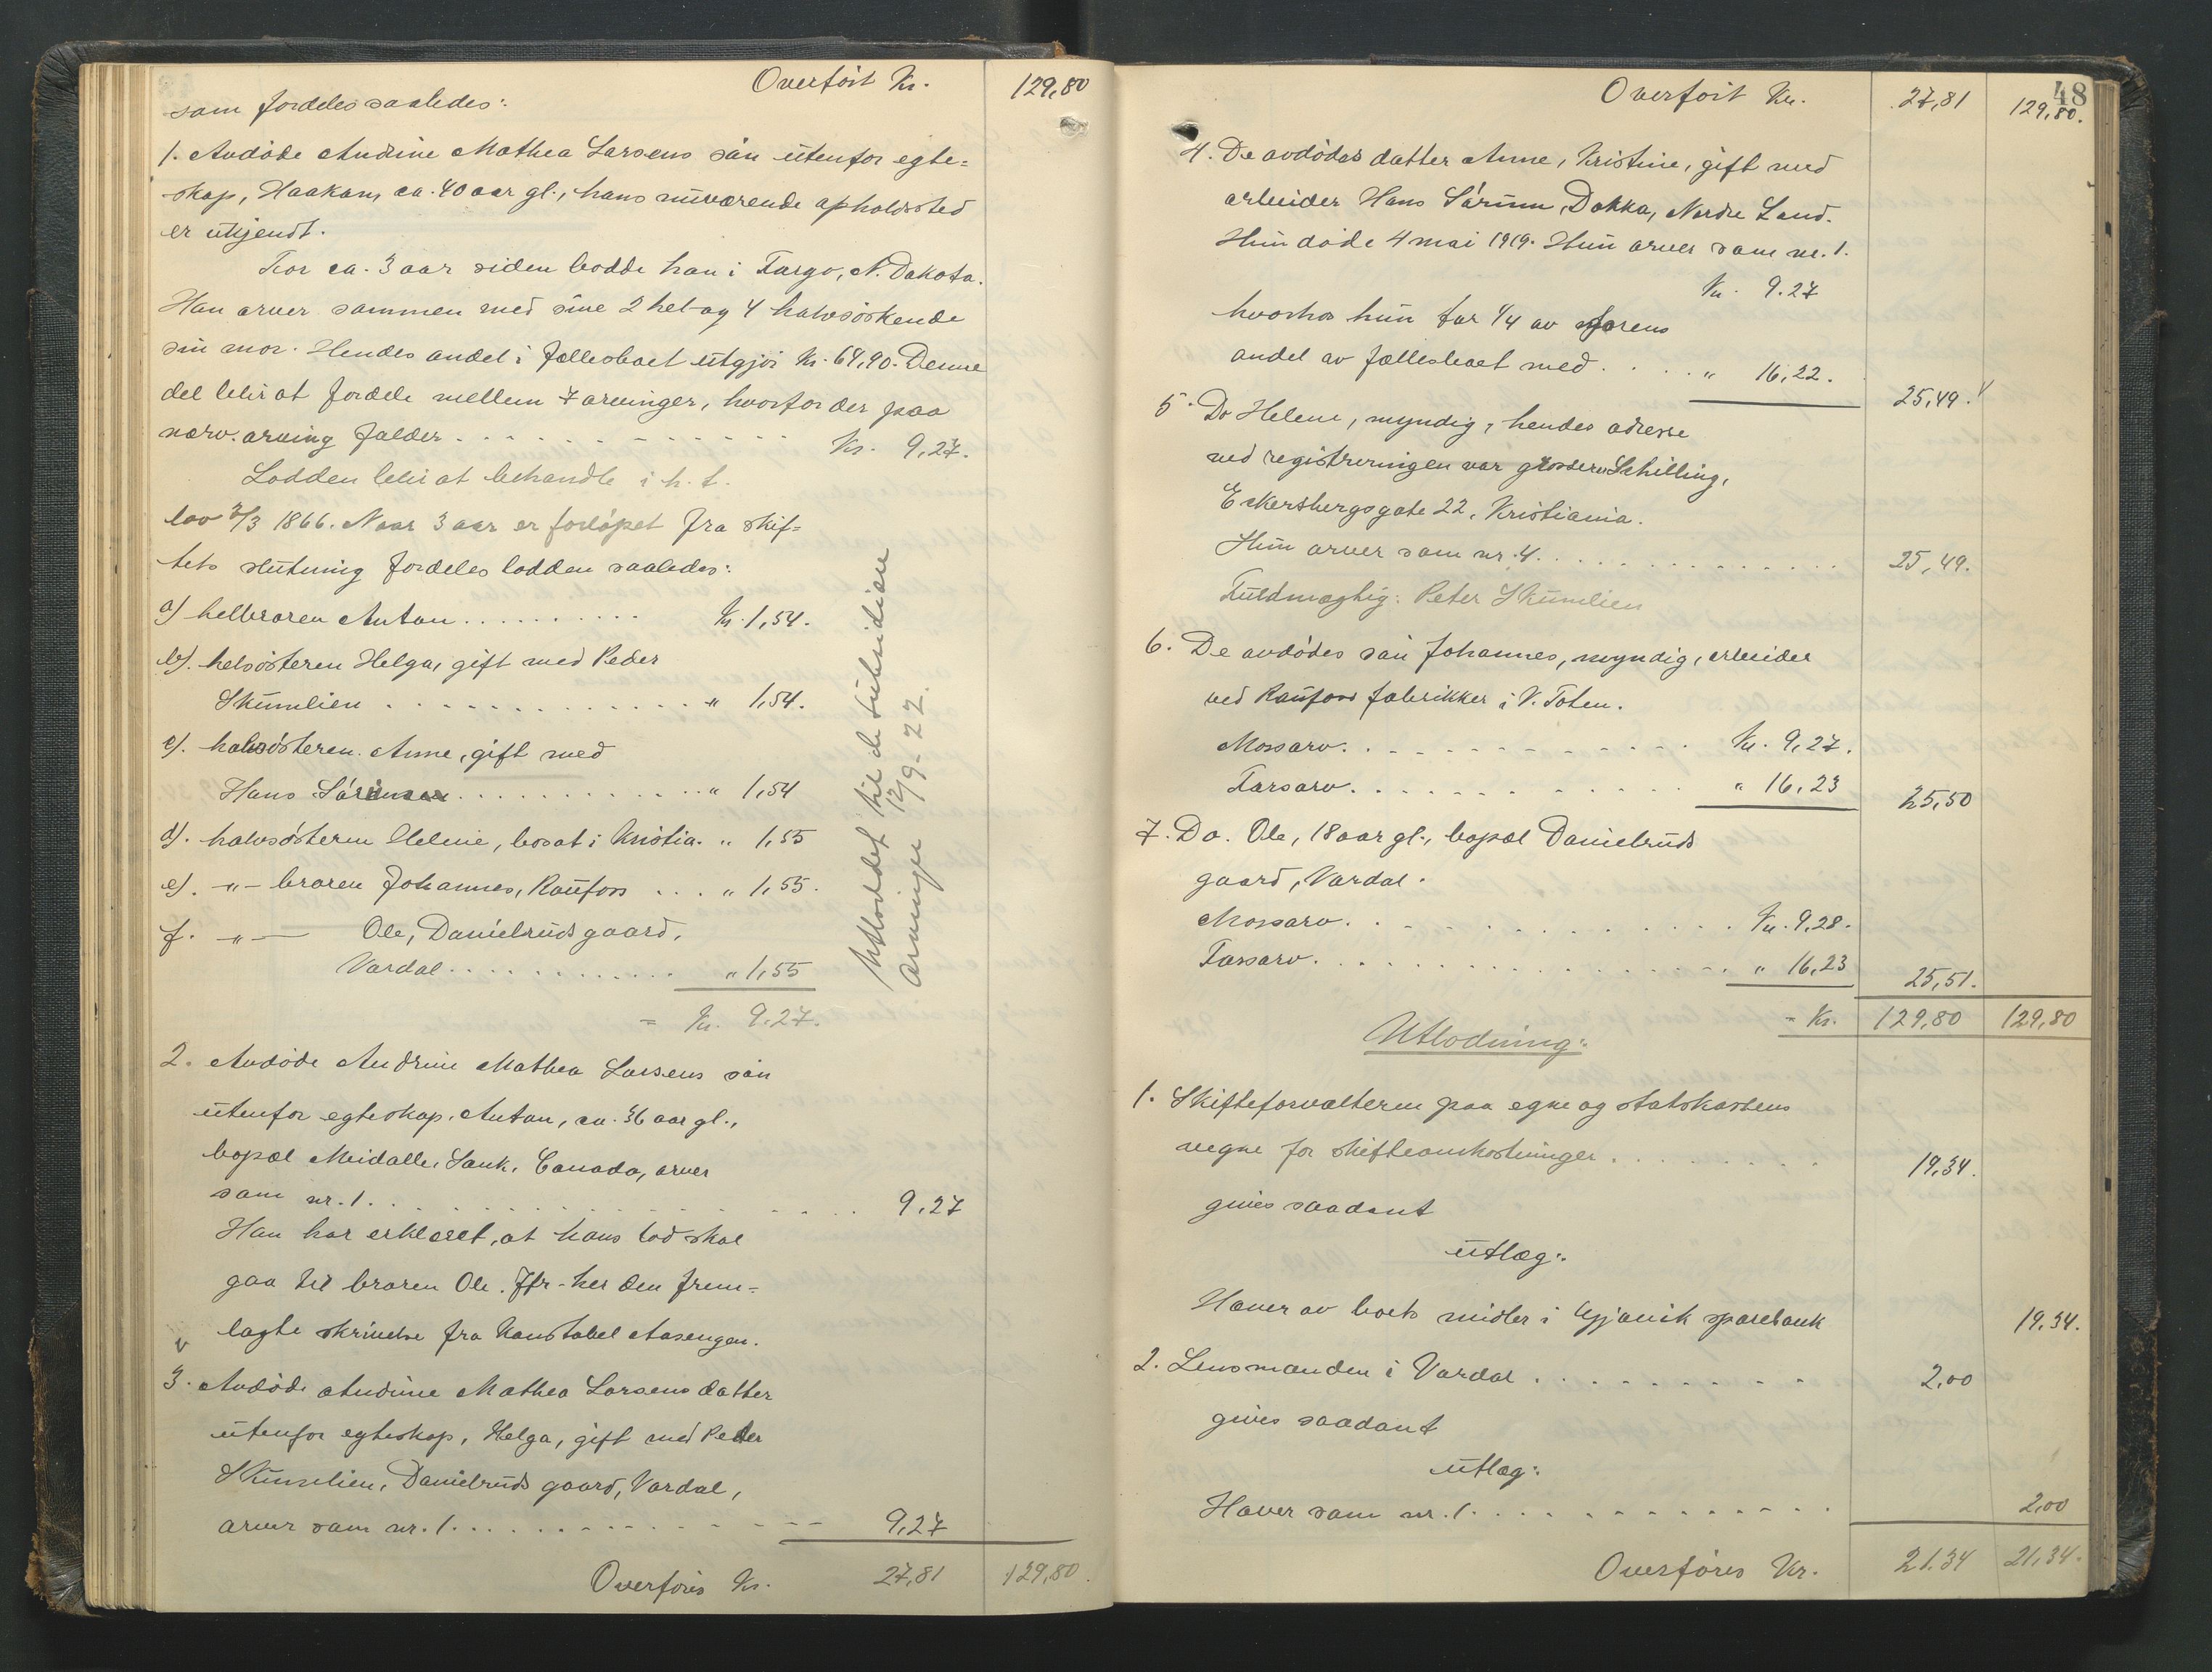 Overført Kr. 129,80
som fordeles saaledes:
1. Avdøde Andrine Mathea Larsens søn utenfor egte=
skap, Haakon, ca. 40 aar gl., hans nuværende opholdssted
er ukjendt.
For ca. 3 aar siden bodde han i Fargo, N. Dakota.
Han arver sammen med sine 2 hel- og 4 halvsøskende
sin mor. Hendes andel i fællesboet utgjør kr. 64,90. Denne
del blir at fordele mellem 7 arvinger, hvorfor der paa
nærv. arving falder . . . . Kr. 9,27.
Lodden blir at behandle i h. t.
lov 3/3 1866. Naar 3 aar er forløpet fra skif=
tets slutning fordeles lodden saaledes:
a) helbroren Anton . . . . Kr. 1,54.
b). helsøsteren Helga, gift med Peder
Skumlien . . . . " 1,54.
c). halvsøsteren Anne, gift med
Hans . . . . " 1,54
d). halvsøsteren Helene, bosat i Kristia. " 1,55
e). -"- broren Johannes, Raufoss . . . " 1,55.
f. -"- Ole, Danielruds gaard,
Vardal . . . . " 1,55
= Kr. 9,27.
Utloddet til de subsidiære
arvinger 12/9-22.
2. Avdøde Andrine Mathea Larsens søn
utenfor egteskap, Anton, ca. 36 aar gl.,
bopæl Meidalle, Sask, Canada, arver
som nr. 1 . . . . 9,27
Han har erklæret, at hans lod skal
gaa til broren Ole. Jfr. her den frem=
lagte skrivelse fra Konstabel Aasengen.
v
3. Avdøde Andrine Mathea Larsens datter
utenfor egteskap, Helga, gift med Peder
Skumlien, Danielruds gaard, Vardal,
arver som nr. 1 . . . . 9,27
Overføres Kr. 27,81 129,80.
48
Overført Kr. 27,81 129,80.
4. De avdødes datter Anne, Kristine, gift med
arbeider Hans Sørum, Dokka, Nordre Land.
Hun døde 4 mai 1919. Hun arver som nr. 1.
Kr. 9.27
hvorhos hun far 1/4 av farens
andel av fællesboet med . . . . " 16,22. 25,49.
5. Do Helene, myndig, hendes adresse
ved registreringen var grosserer Schilling,
Eckersbergsgate 22, Kristiania.
Hun arver som nr. 4 . . . . 25,49.
Fuldmægtig: Peter Skumlien
6. De avdødes søn Johannes, myndig, arbeider
ved Raufoss fabrikker i V. Toten.
Morsarv . . . . Kr. 9,27.
Farsarv . . . . " 16,23 25,50
7. Do. Ole, 18 aar gl., bopæl Danielruds
gaard, Vardal.
Morsarv . . . . Kr. 9,28.
Farsarv . . . . " 16,23 25,51.
= Kr. 129,80 129,80
Utlodning:
1. Skifteforvalteren paa egne og statskassens
vegne for skifteomkostninger . . . . 19,34.
gives saadant
utlæg:
Hæver av boets midler i Gjøvik sparebank 19,34.
2. Lensmanden i Vardal . . . . 2,00
gives saadant
utlæg:
Hæver som nr. 1. . . . . 2,00
Overføres Kr. 21.34 21,34.